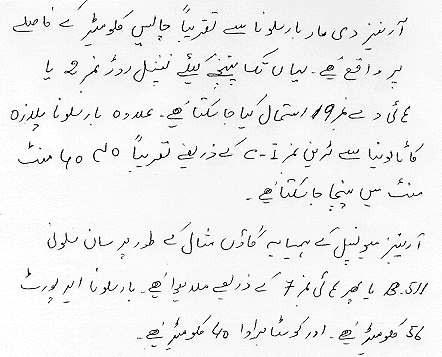 آرینیز دی مار بارسلونا سے تقریباً چالیس کلومیٹر کے فاصلے
پر واقع ہے۔ یہاں تک پہنچنے کیلئے نیشنل روڈ نمبر 2 یا
ہائی وے نمبر 19 استعمال کیا جا سکتا ہے۔ علاوہ بارسلونا پلازہ
کاتالونیا سے ٹرین نمبر C-1 کے ذریعے تقریباً 40 منٹ
منٹ میں پہنچا جا سکتا ہے۔
آرینیز میونسپل کے ہمسایہ گاؤں مثال کے طور پر سان سلونی
B-511 یا پھر ہائی نمبر 7 کے ذریعے ملا ہوا ہے۔ بارسلونا ایرپورٹ
56 کلومیٹر ہے۔ اور کوسٹا براوا 40 کلومیٹر ہے۔